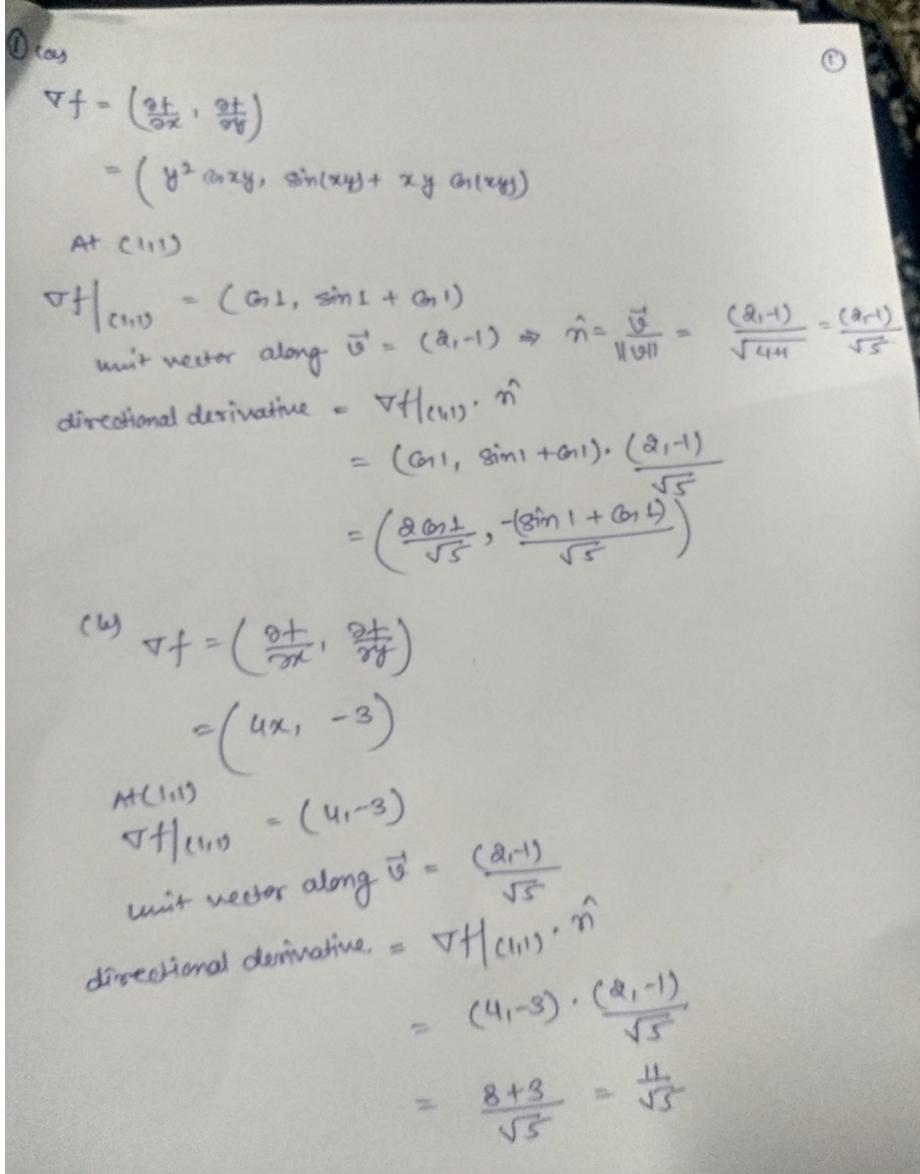 ① (a) ①
∇f = (∂f/∂x, ∂f/∂y)
= (y² cos xy, sin(xy) + xy cos(xy))
At (1,1)
∇f|(1,1) = (cos 1, sin 1 + cos 1)
unit vector along v⃗ = (2,-1) ⇒ n̂ = v⃗/||v|| = (2,-1)/√4+1 = (2,-1)/√5
directional derivative = ∇f|(1,1) · n̂
= (cos 1, sin 1 + cos 1) · (2,-1)/√5
= (2 cos 1/√5, -(sin 1 + cos 1)/√5)
(b) ∇f = (∂f/∂x, ∂f/∂y)
= (4x, -3)
At (1,1)
∇f|(1,1) = (4,-3)
unit vector along v⃗ = (2,-1)/√5
directional derivative = ∇f|(1,1) · n̂
= (4,-3) · (2,-1)/√5
= 8+3/√5 = 11/√5